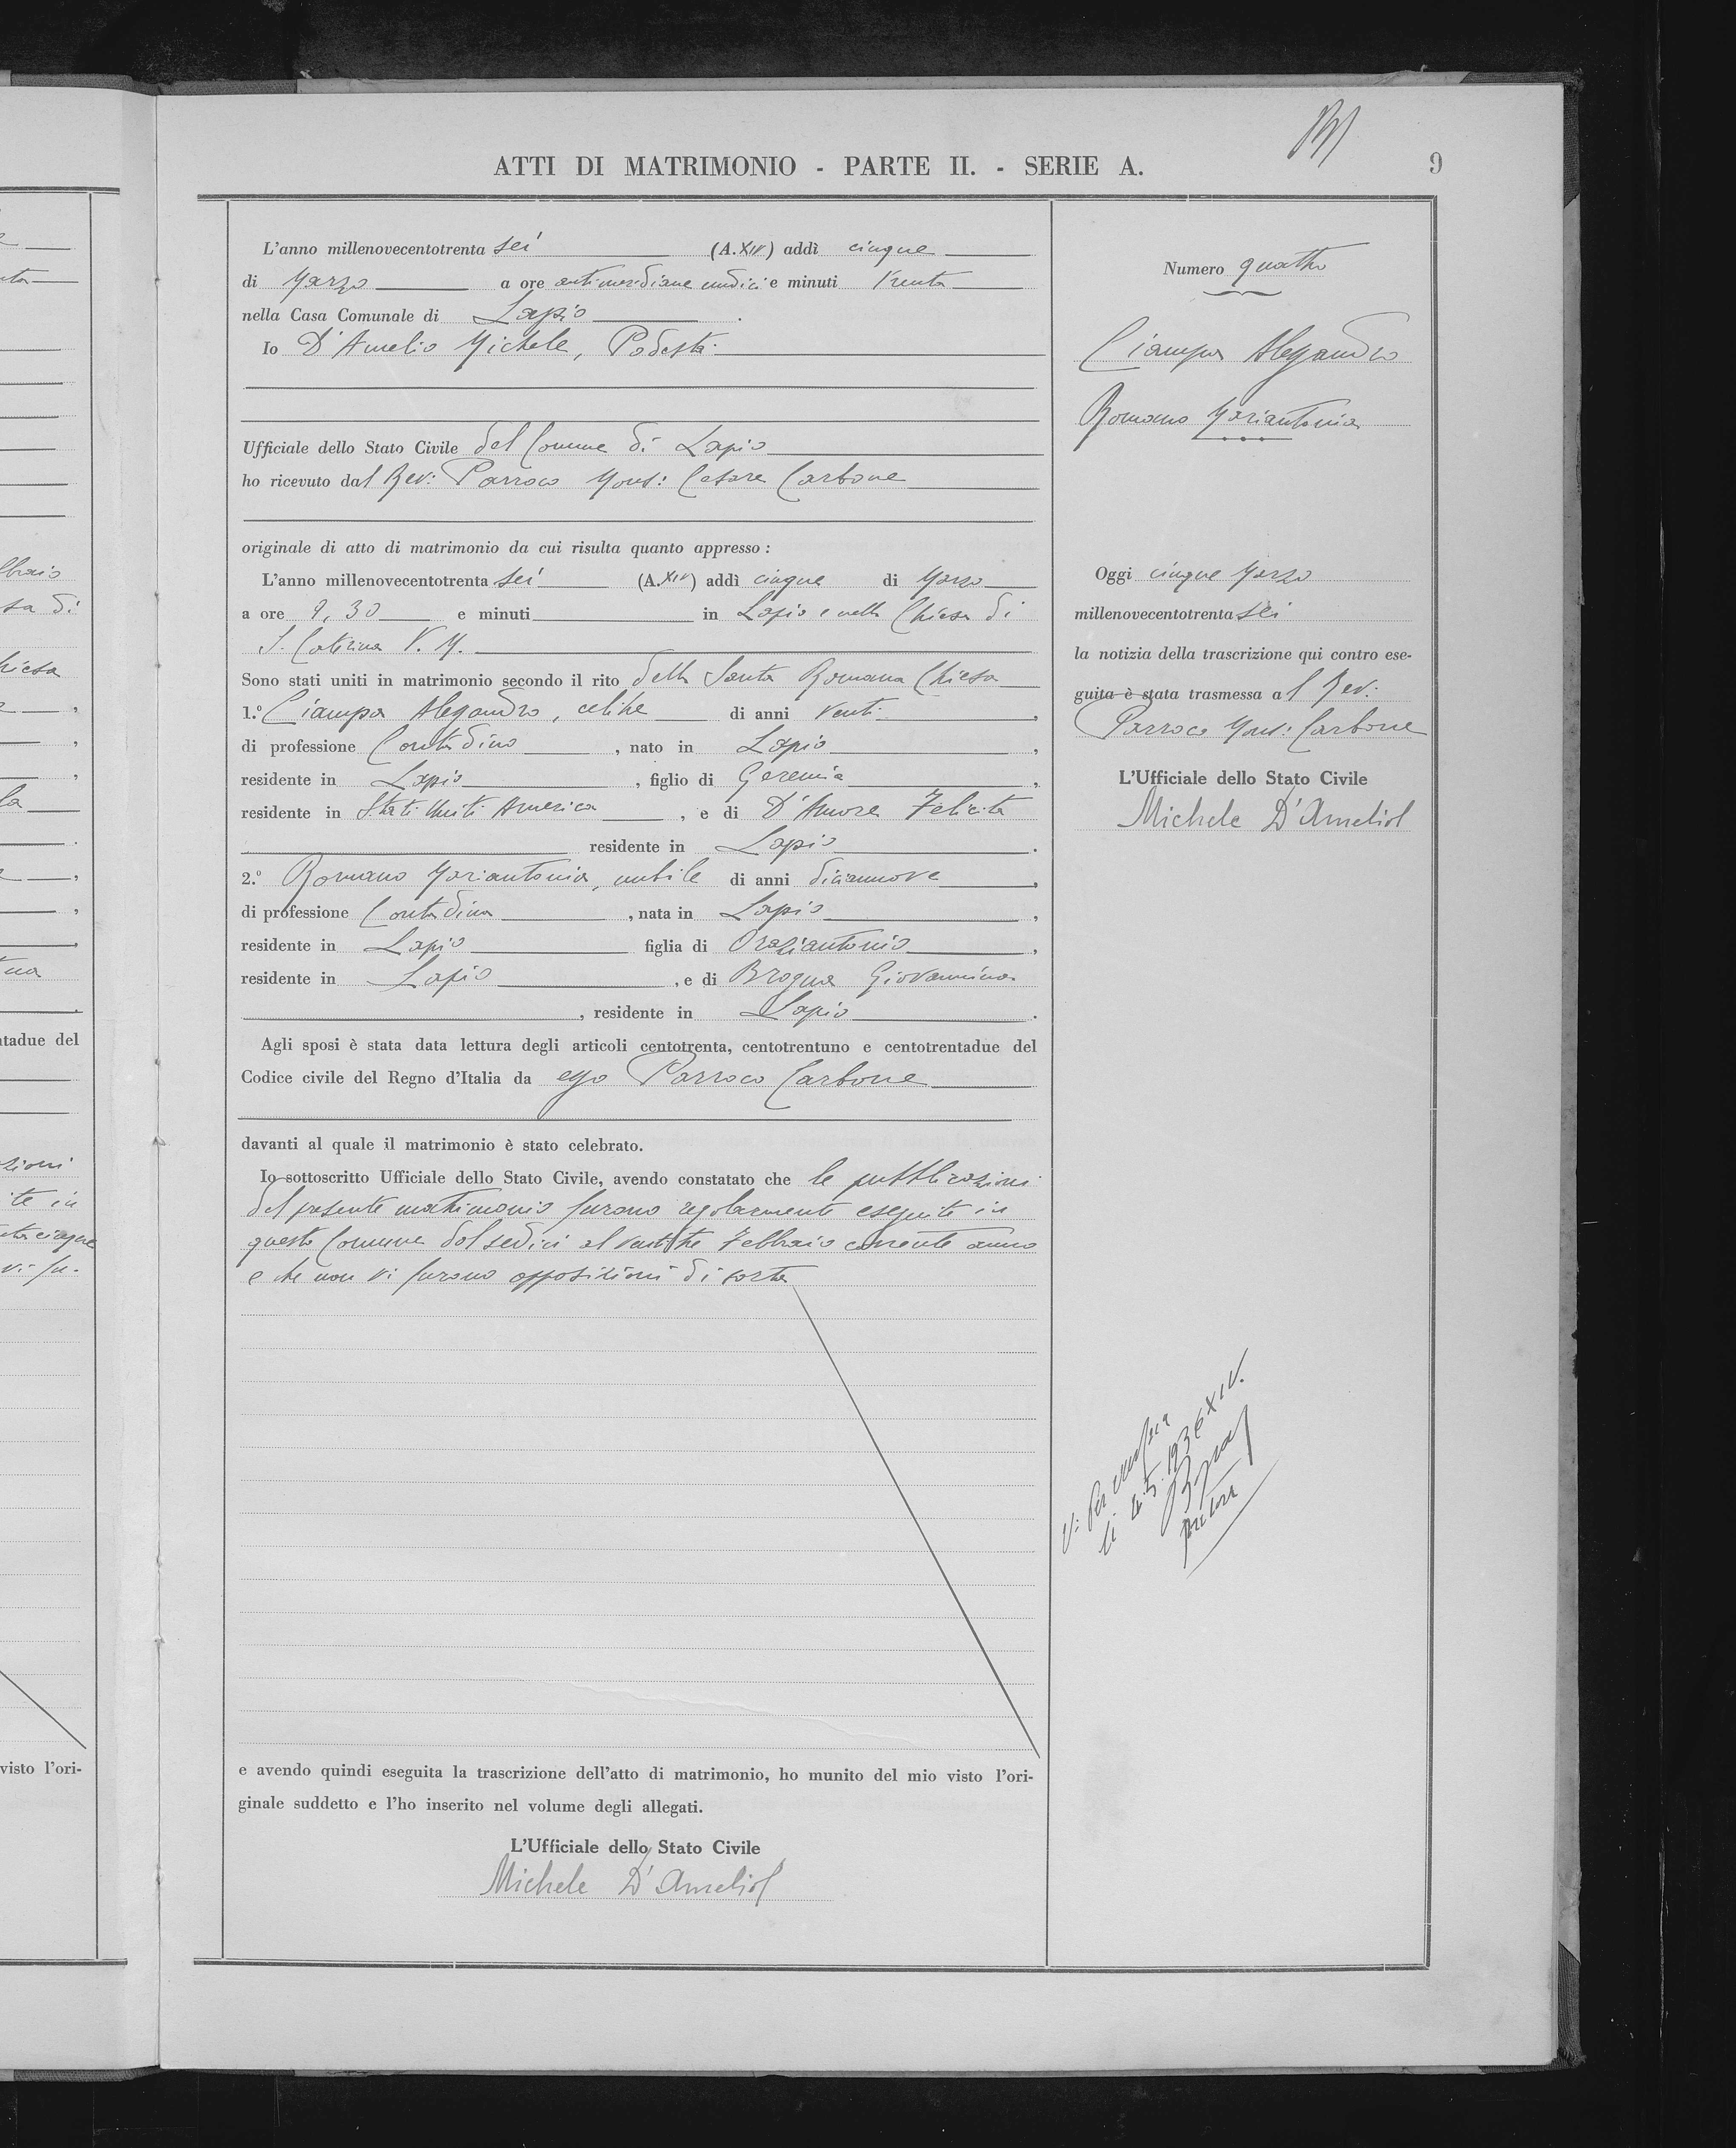 ATTI DI MATRIMONIO - PARTE II. - SERIE A.
9
L'anno millenovecentotrenta sei (A. XIV) addì cinque
di Marzo a ore antimeridiane undici e minuti trenta
nella Casa Comunale di Lapio.
Io D'Amelio Michele, Podestà
Ufficiale dello Stato Civile del Comune di Lapio
ho ricevuto dal Rev: Parroco Mons: Cesare Carbone
originale di atto di matrimonio da cui risulta quanto appresso:
L'anno millenovecentotrenta sei (A. XIV) addì cinque di Marzo
a ore 9,30 e minuti in Lapio e nella Chiesa di
S. Caterina V. M.
Sono stati uniti in matrimonio secondo il rito della Santa Romana Chiesa
1.° Ciampa Alessandro, celibe di anni venti,
di professione Contadino, nato in Lapio,
residente in Lapio, figlio di Geremia,
residente in Stati Uniti America, e di D'Amore Felicita
residente in Lapio.
2.° Romano Mariantonia, nubile di anni diciannove,
di professione Contadina, nata in Lapio,
residente in Lapio figlia di Oraziantonio,
residente in Lapio, e di Brogna Giovannina
, residente in Lapio.
Agli sposi è stata data lettura degli articoli centotrenta, centotrentuno e centotrentadue del
Codice civile del Regno d'Italia da esso Parroco Carbone
davanti al quale il matrimonio è stato celebrato.
Io sottoscritto Ufficiale dello Stato Civile, avendo constatato che le pubblicazioni
del presente matrimonio furono regolarmente eseguite in
questo Comune dal sedici al ventitre Febbraio corrente anno
e che non vi furono opposizioni di sorta
e avendo quindi eseguita la trascrizione dell'atto di matrimonio, ho munito del mio visto l'ori-
ginale suddetto e l'ho inserito nel volume degli allegati.
L'Ufficiale dello Stato Civile
Michele D'Amelio
Numero quattro
Ciampa Alessandro
Romano Mariantonia
Oggi cinque Marzo
millenovecentotrenta sei
la notizia della trascrizione qui contro ese-
guita è stata trasmessa al Rev:
Parroco Mons: Carbone
L'Ufficiale dello Stato Civile
Michele D'Amelio
V: Per verifica
li 4.5.1936 XIV.
Pretore
ntadue del
visto l'ori-